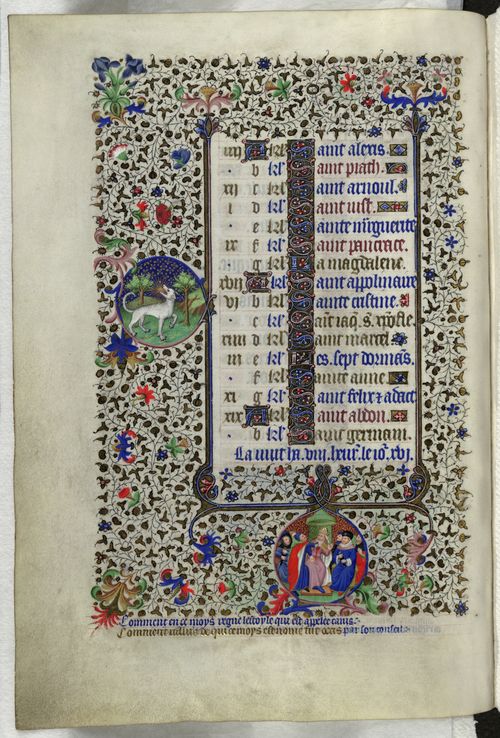 xvi A kl' Saint alexis.
b kl' Saint prach.
xii c kl' Saint arnoul.
i d kl' Saint iust.
e kl' Sainte m'guerite
ix f kl' Saint pancrace.
g kl' La magdalene.
xvii A kl' Saint appolinaire
vi b kl' Sainte cristine.
c kl' Sait iaq. s. xpofle
xiiii d kl' Saint marcel.
iii e kl' Les. sept. dormans.
f kl' Sainte anne.
xi g kl' Saint felix 7 adact
xix A kl' Saint abdon.
b kl' Saint germain.
La nuit ha. viii. heur' le io. xvj.
Comment en ce moys regne lestoyle que est appelee canis.
Comment iullius de qui ce moys est nome fut occis par son conseil.